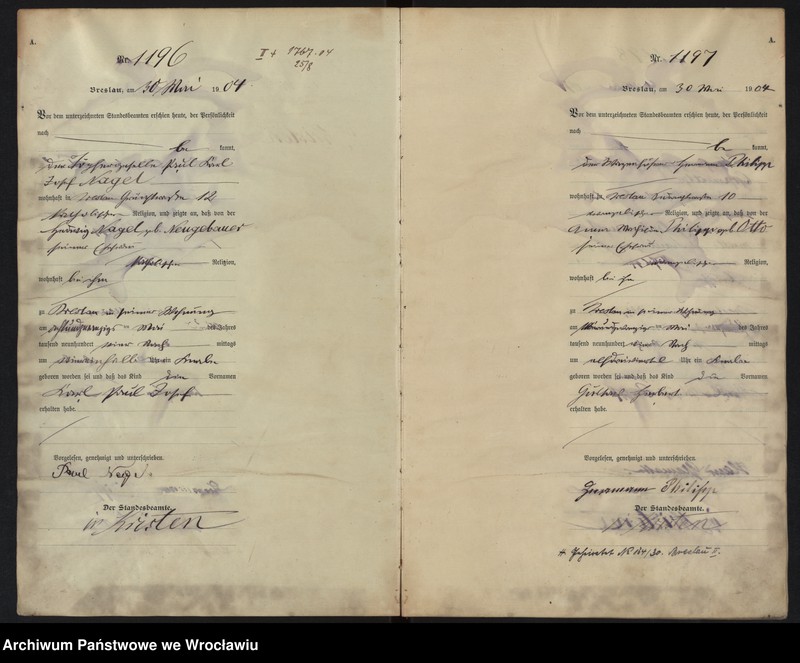 A.
Nr. 1196
II + 9767.04
25/8
Breslau, am 30 Mai 1904
Vor dem unterzeichneten Standesbeamten erschien heute, der Persönlichkeit
nach
be kannt,
Paul Karl
Josef Nagel
wohnhaft in Breslau 12
katholischer Religion, und zeigte an, daß von der
Hedwig Nagel geb. Neugebauer
seiner Ehefrau
katholischer Religion,
wohnhaft bei ihm
zu Breslau in seiner Wohnung
am Mai des Jahres
tausend neunhundert vier Nach mittags
um Uhr ein Knabe
geboren worden sei und daß das Kind die Vornamen
Karl Paul Josef
erhalten habe.
Vorgelesen, genehmigt und unterschrieben.
Paul Nagel
Der Standesbeamte.
Kirsten
A.
Nr. 1197
Breslau, am 30 Mai 1904
Vor dem unterzeichneten Standesbeamten erschien heute, der Persönlichkeit
nach
be kannt,
der Hermann Philipp
wohnhaft in Breslau 10
evangelischer Religion, und zeigte an, daß von der
Anna Philipp geb. Otto
seiner Ehefrau
evangelischer Religion,
wohnhaft bei ihm
zu Breslau in seiner Wohnung
am Mai des Jahres
tausend neunhundert vier Nach mittags
um Uhr ein Knabe
geboren worden sei und daß das Kind die Vornamen
Herbert
erhalten habe.
Vorgelesen, genehmigt und unterschrieben.
Hermann Philipp
Der Standesbeamte.
+ Geheiratet Nr. Breslau II.
Archiwum Państwowe we Wrocławiu